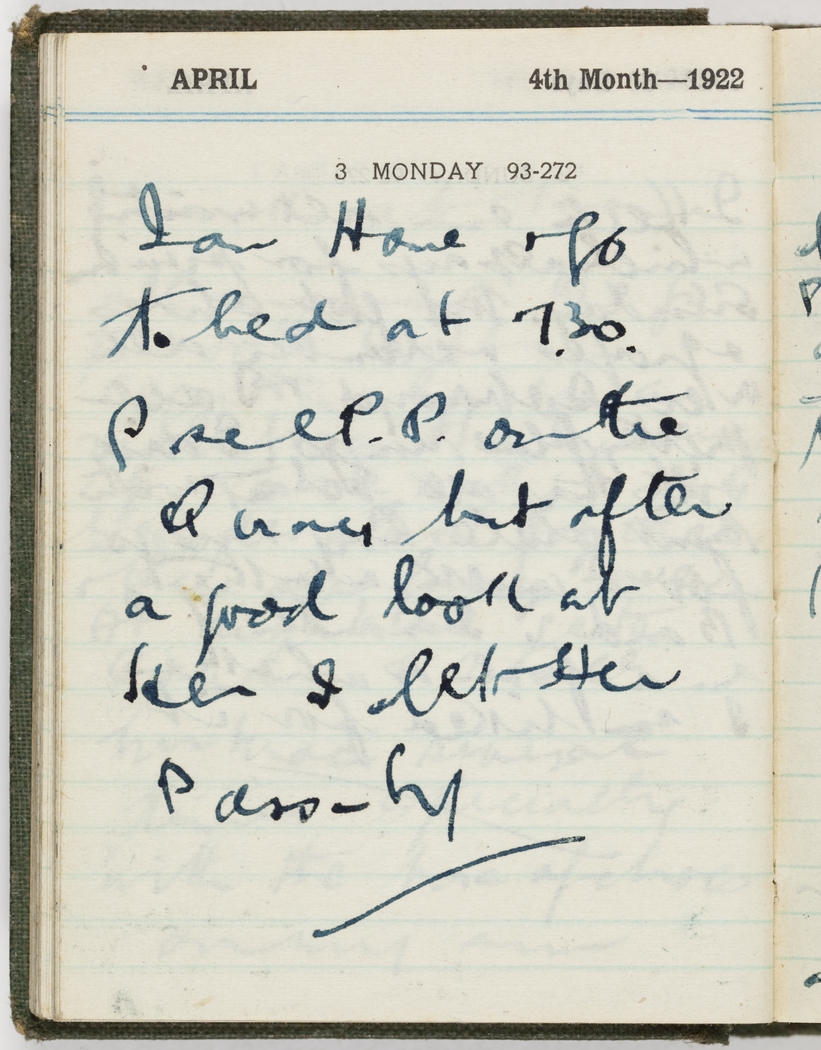 APRIL 4th Month—1922
3 MONDAY 93-272
I am Home & go
to bed at 7.30.
I see P. P. on the
but after
a good look at
Her I let Her
Pass-by